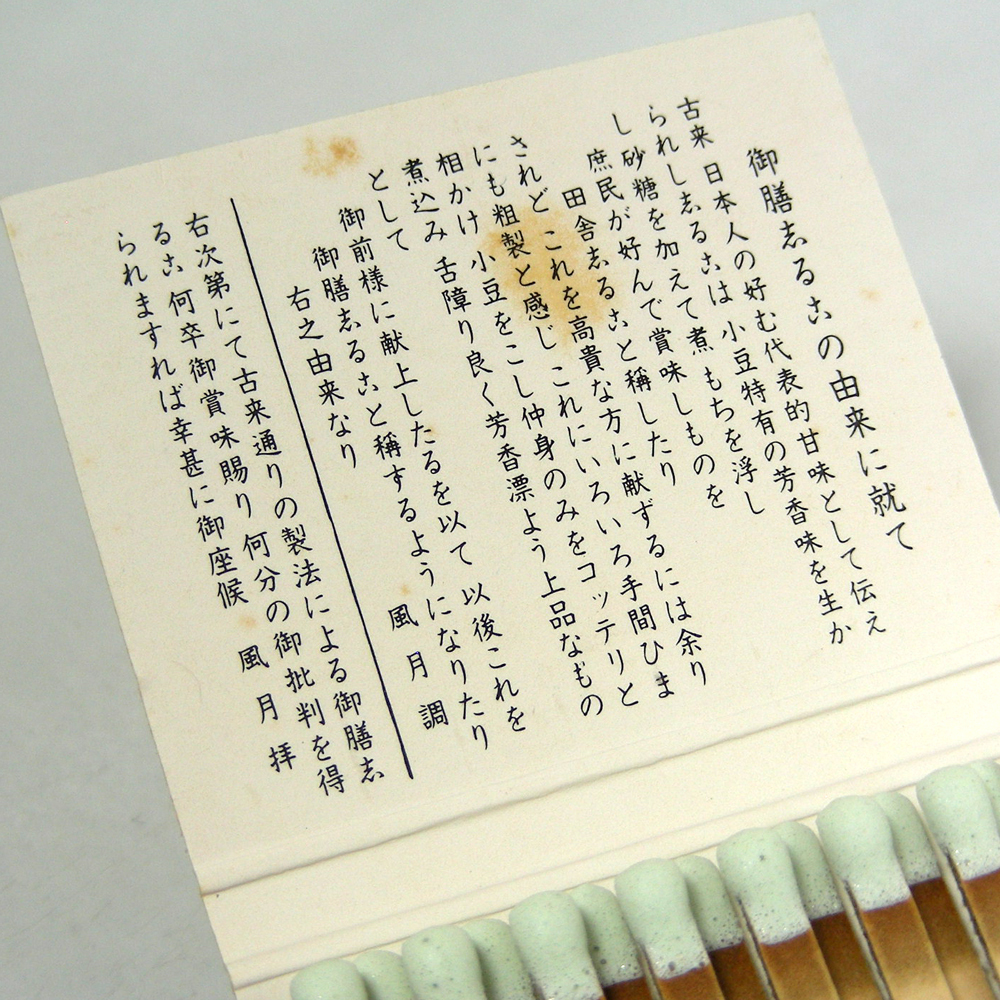 御膳志るこの由来に就て
古来 日本人の好む代表的甘味として伝え
られし志るこは 小豆特有の芳香味を生か
し砂糖を加えて煮 もちを浮し
庶民が好んで賞味しものを
田舎志ること稱したり
されど これを高貴な方に献ずるには余り
にも粗製と感じ これにいろいろ手間ひま
相かけ 小豆をこし仲身のみをコッテリと
煮込み 舌障り良く芳香漂よう上品なもの
として
御前様に献上したるを以て 以後これを
御膳志ること稱するようになりたり
右之由来なり
風月調
右次第にて古来通りの製法による御膳志
るこ何卒御賞味賜り何分の御批判を得
られますれば幸甚に御座候
風月拝